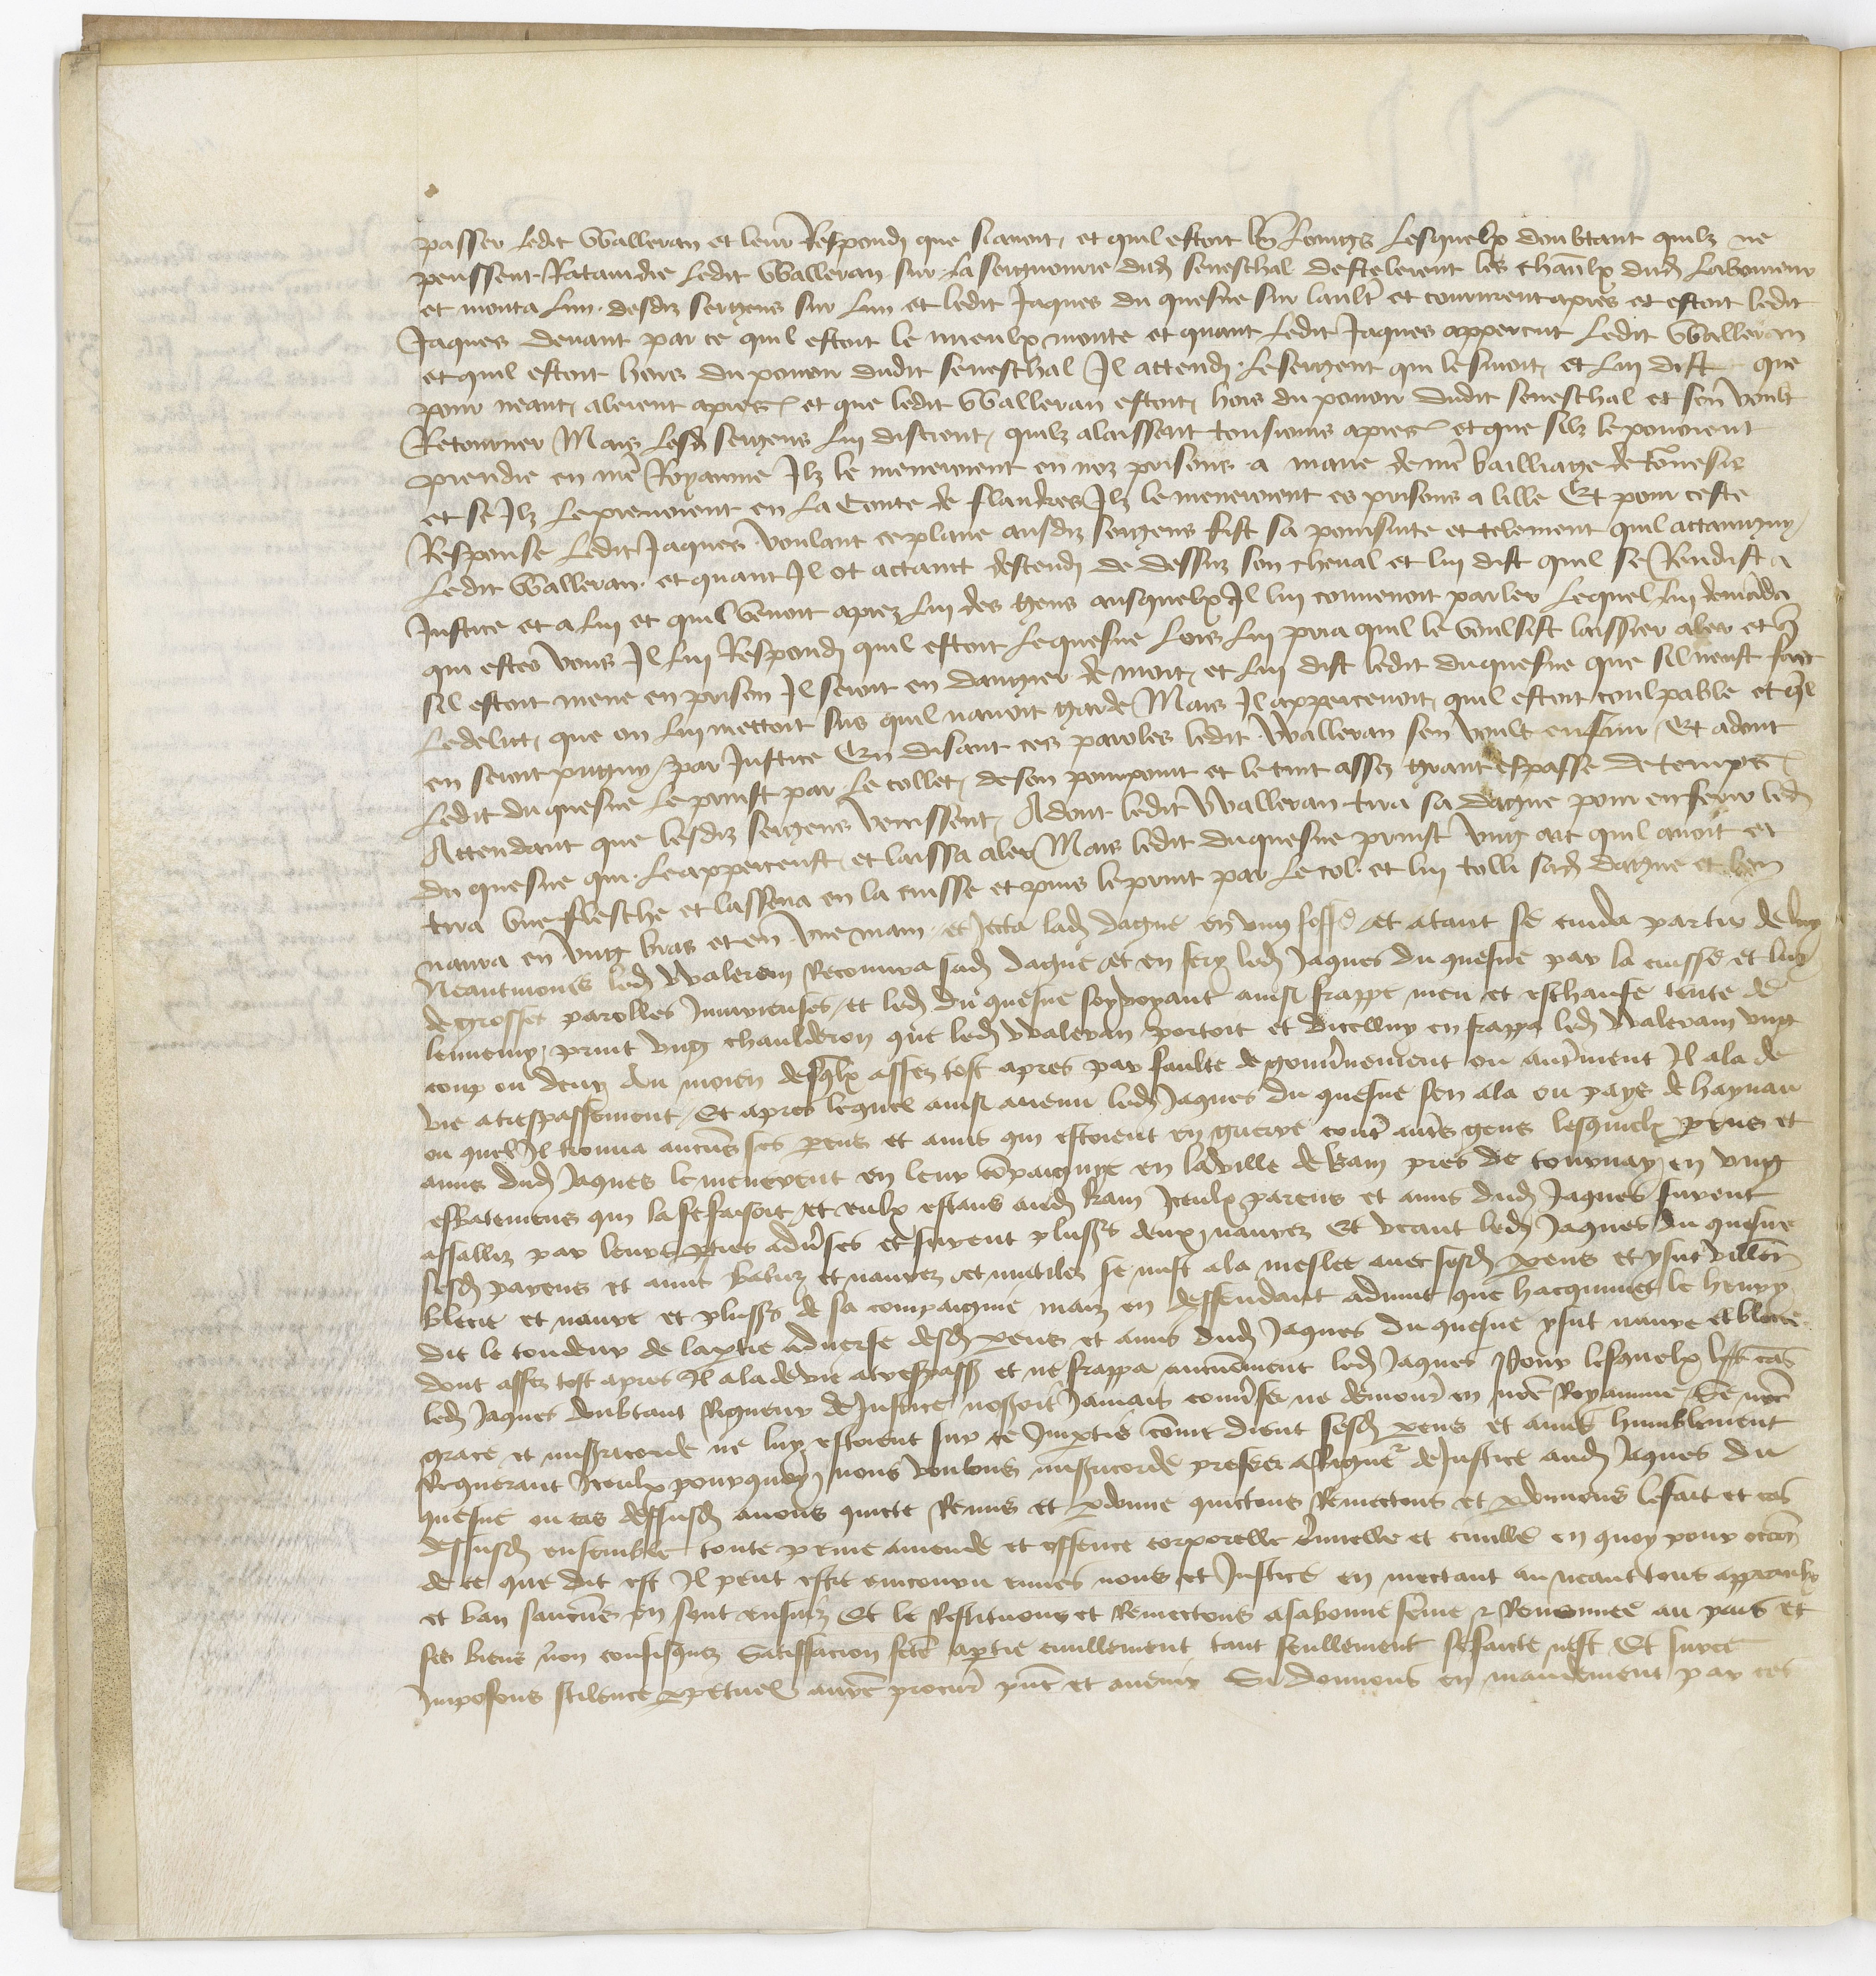 passer ledit Walleran et leur Respondj que si avoit et quil estoit bn̄ loings lesquelx doubtant quilz ne
peussent Rataindre ledit Walleran sur la seignourie dudj seneschal destelerent les chāulx dudj laboureur
et monta lun desdiz sergens sur lun et ledit Jaques du quesne sur laultr̄ et coururent apres et estoit ledit
Jaques devant par ce quil estoit le mieulx monte et quant ledit Jaques appercut ledit Walleran
et quil estoit hors du povoir dudit seneschal Il attendj le sergent qui le suioit et luy dist que
pour neant aloient apres et que ledit Walleran estoit hors du povoir dudit seneschal et sen voult
Retourner Mais lesdj sergens luy disrent quilz alaissent tousiours apres et que silz le povoient
prendre en nr̄e Royaume Ilz le menroient en noz prisons a maire de nr̄e bailliage de to͞nesis
et se Ilz le prenoient en la Conte de flandres Ilz le menroient es prisons a lille Et pour ceste
Response ledit Jaques voulant complaire ausdiz sergens fist sa poursuite et telement quil attaigny
ledit Walleran et quant Il ot actaint descendj de dessuz son cheval et luy dist quil se Rendist a
Justice et a luy et quil venoit aprez luy des gens ausquelx Il luy convenoit parler lequel luy demāda
qui estes vous Il luy Respondj quil estoit le quesne lors luy pria quil le voulsist laissier aler et q̄
sil estoit mene en prison Il seroit en dangier de mort et luy dist ledit du quesne que sil neust fait
le delict que on luy mettoit sus quil navoit garde Mais Il appercevoit quil estoit coulpable et ql̄
en seroit pugny par Justice En disant ces paroles ledit Walleran sen voult enfuir Et adont
ledit du quesne le prinst par le collet de son pourpoint et le tint assez grant espasse de temps
Attendant que lesdiz sergens venissent Adont ledit Walleran tira sa dague pour en ferir ledj
du quesne qui le appercut et laissa aler Mais ledit du quesne prinst ung arc quil avoit et
tira une flesche et lassena en la cuisse et puis le print par le col et luy tolli sadj dague et len
navra en ung bras et en une main et Jecta ladj dague en ung fosse et atant se cuida partir de luy
Neantmoins ledj Waleran Recouvra sadj dague et en fery ledj Jaques du quesne par la cuisse et luy
de grosses parolles Iniurieuses et ledj du quesne soy voyant ainsi frappe meu et eschaufe tente de
lennemy print ung chaulderon que ledj Waleran portoit et dicelluy en frappa ledj Waleram ung
coup ou deux Au moien desqlx assez tost apres par faulte de gouv̄nement ou autr̄ment Il ala de
vie a trespassement Et apres lequel ainsi avenu ledj Jaques du quesne sen ala ou pays de haynau
ou quel Il trouva aucūs ses p̄ens et amis qui estoient en guerre contr̄ autr̄s gens lesquielx p̄ens et
amis dudj Jaques le menerent en leur cōpaignye en la ville de kam pres de tournay en ung
esbatemens qui la se faisoit et eulx estans audj kam Iceulx parens et amis dudj Jaques furent
assalliz par leurs p̄ties adv̄ses et furent plus̄s deulx navrez Et veant ledj Jaques du quesne
sesdj parens et amis batuz et navrez et mutilez se mist a la meslee avec sesdj p̄ens et y fut villeñ
blecie et navre et plus̄s de sa compaignie maiz en deffendant advint que hacquinet le henry
dit le tondeur de la p̄tie adverse desdj p̄ens et amis dudj Jaques du quesne y fut navre et blecie
dont assez tost apres Il ala de vie a trespass̄ et ne frappa aucunem̄ent ledj Jaques Pour lesquelx cas
ledj Jaques doubtant Rigueur de Justice noseroit Jamais conv̄ser ne demour̄ en nr̄e Royaume Se nr̄e
grace et mis̄ricorde ne luy estoient sur ce Imp̄ties com̄e dient sesdj p̄ens et amis humblement
Requerant Iceulx pourquoy nous voulans mis̄ricorde preferer a Rigue^r de Justice audj Jaques du
quesne ou cas dessusdj avons quicte Remis et p̄donne quictons Remectons et p̄donnons le fait et cas
dessusdj ensemble toute peine amende et offence corporelle cr̄iminelle et civille en quoy pour occōn
de ce que dit est Il peut estre encouru envers nous et Justice en mectant au neant tous appeaulx
et ban saucūs en sont ensuiz Et le Restituons et Remectons a sa bonne fāme & Renommee au pais et
ses biens non confisquez Satisfacion fc̄te a p̄tie civillement tant seullement se faicte nest Et sur ce
Imposons scilence p̄petuel a nr̄e procur̄ pn̄t et avenir Si donnons en mandement par ces